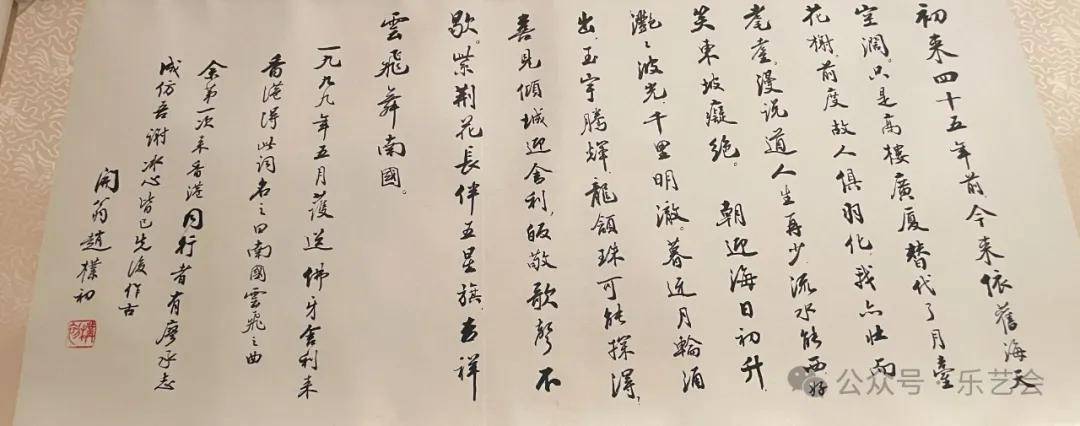 初来四十五年前,今来依舊海天
空濶。只是高樓廣厦替代了月臺
花榭。前度故人俱羽化,我亦壮而
耄耋。漫说道人生再少,流水能西,好
笑東坡癡绝。 朝迎海日初升,
灔灔波光,千里明澈。暮近月輪涌
出,玉宇腾辉,龍颔珠可能探得,
喜見傾城迎舍利,皈敬歌聲不
歇。紫荆花長伴五星旗,吉祥
雲飛舞南國。
一九九九年五月護送佛牙舍利来
香港得此词名之曰南國雲飛之曲
余第一次来香港同行者有廖承志
成仿吾谢冰心皆已先後作古
開翁趙樸初
公众号 乐艺会